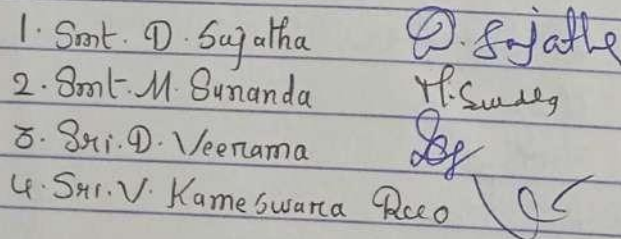 1. Smt. D. Sujatha D. Sujatha
2. Smt. M. Sunanda M. Sunda
3. Sri. D. Veerama
4. Sri. V. Kameswara Rao